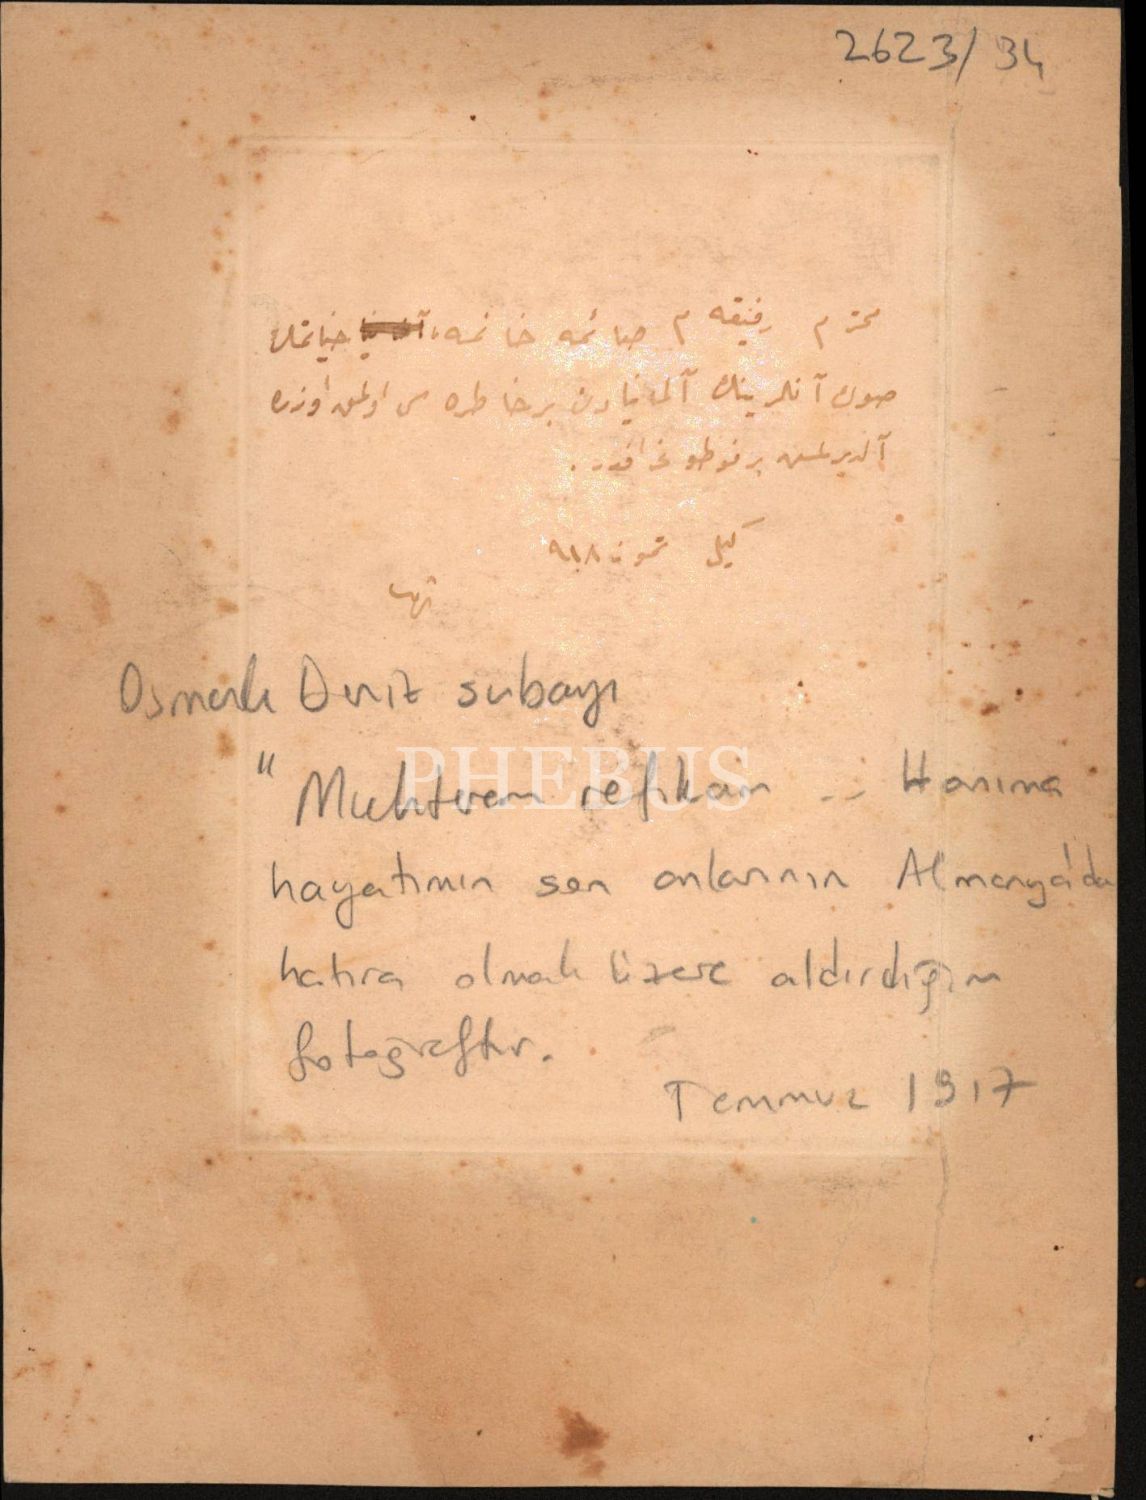 2623/34
محترم رفیقه م صائمه خانمه، حیاتمك
صوك آنلرینك آلمانیادن بر خاطره سی اولمق اوزره
آلدیرلمش بر فوطوغرافدر.
کیل تموز ۹۱۸
Osmanlı Deniz subayı
" Muhterem refikam -- Hanıma
hayatımın son anlarının Almanya'da
hatıra olmak üzere aldırdığım
fotoğraftır.
Temmuz 1917
PHEBUS